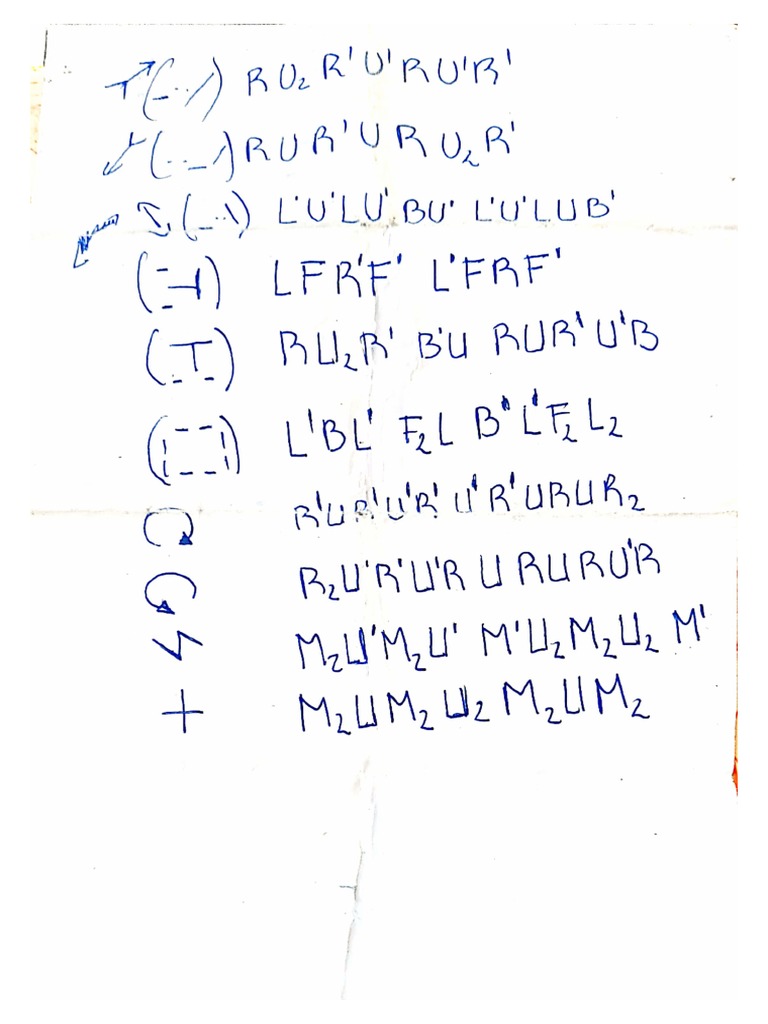 (-··/) R U₂ R' U' R U' R'
(··_\) R U R' U R U₂ R'
(_··\) L'U'LU' BU' L'U'LUB'
LFR'F' L'FRF'
RU₂R' B'U RUR'U'B
L'BL' F₂L B'L'F₂L₂
R'UR'U'R'U'R'URUR₂
R₂U'R'U'R U RURU'R
M₂U'M₂U' M'U₂M₂U₂ M'
+ M₂UM₂ U₂ M₂UM₂